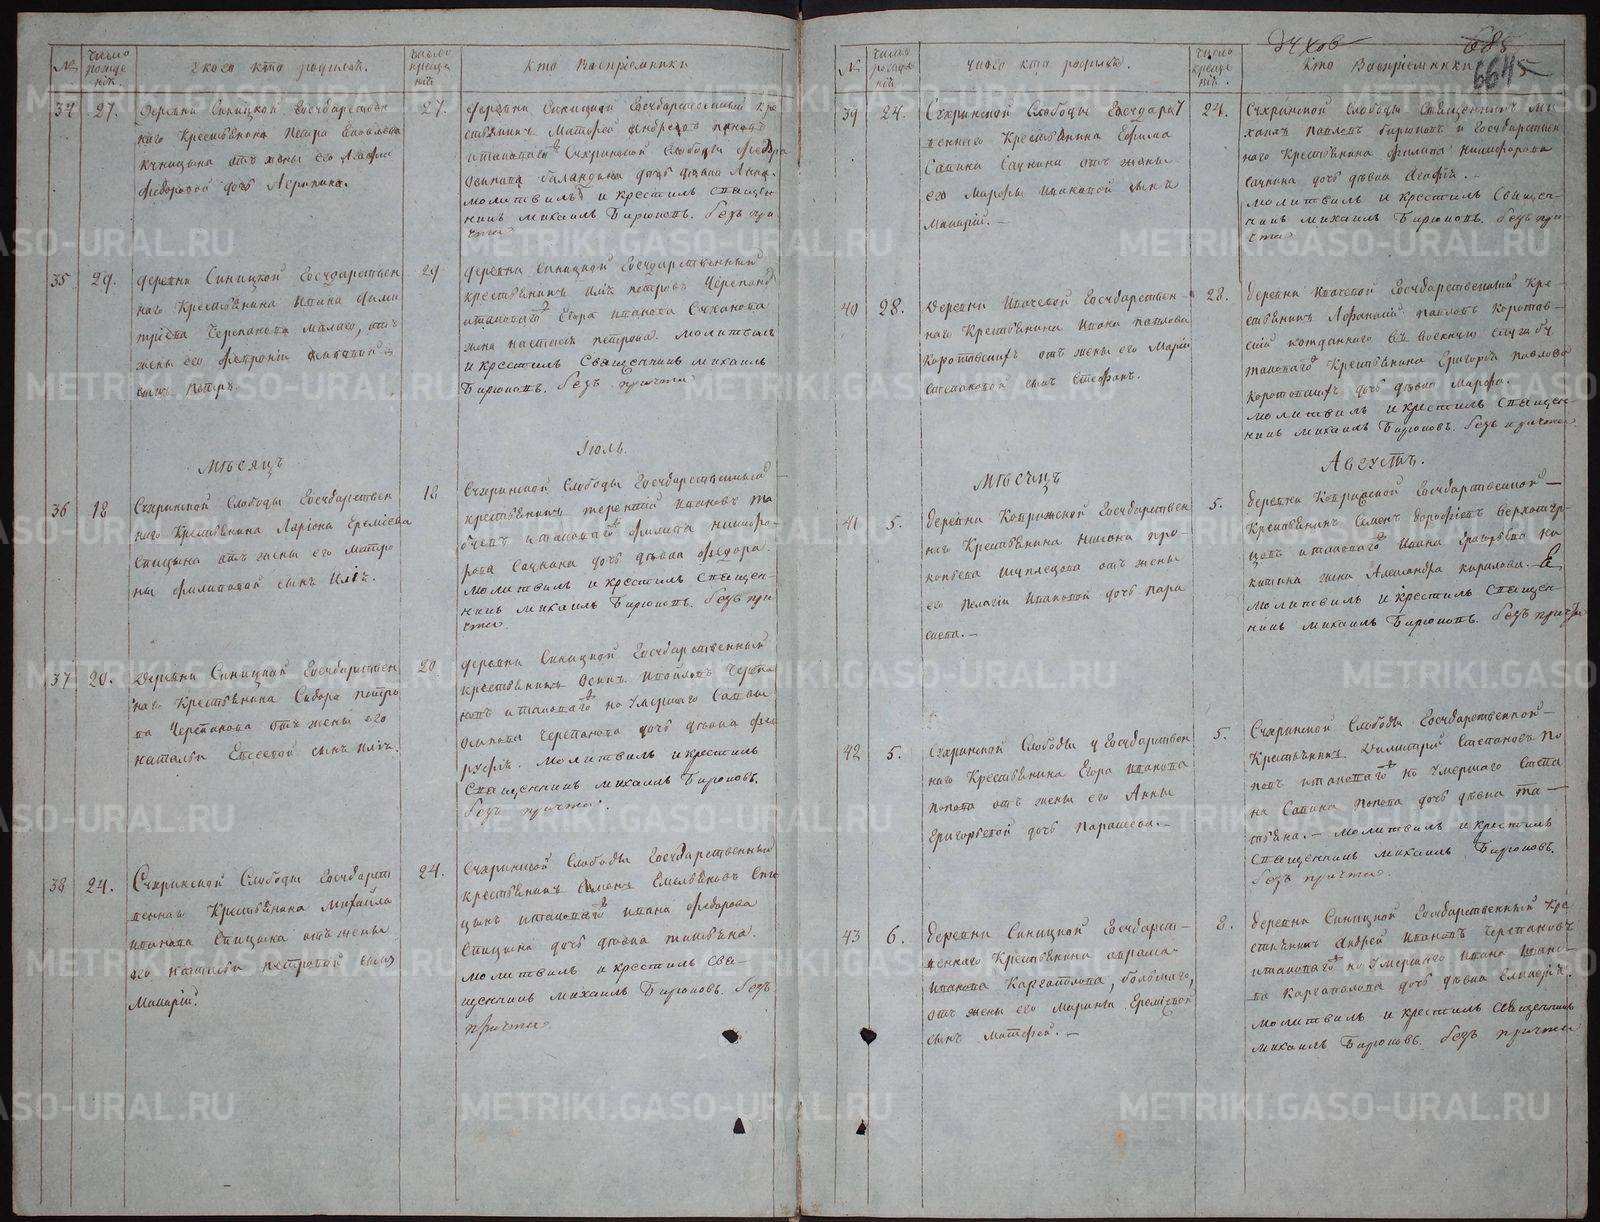 №
Число рожде нія.
У кого кто родился.
Число креще нія.
Кто Воспріемники
34
27.
Деревни Синицкой Государствен
наго Крестьянина Петра Яковлева
Куницына отъ жены его Агафіи
Федоровой дочь Агрипина.
27.
деревни Синицкой Государственный кре
стьянинъ Матфей Андреевъ
Сухринской Слободы Федора
Осипова Баландина дочь дѣвка Анна.
молитвилъ и крестилъ священ
никъ Михаилъ Бирюковъ. безъ при
чта
35
29.
деревни Синицкой Государствен
наго Крестьянина Ивана Дими
тріева Черепанова малаго, отъ
жены его Февроніи
сынъ Петръ.
29
деревни Синицкой Государственный
крестьянинъ Илія Петровъ Черепановъ
и таковагожъ Егора Иванова Суханова
жена Настасія Петрова. молитвилъ
и крестилъ Священникъ Михаилъ
Бирюковъ. безъ причта
Мѣсяцъ
Іюль.
36
18
Сухринской Слободы Государствен
наго Крестьянина Ларіона Еремѣева
Спицына отъ жены его Матро
ны Филиповой сынъ Илія.
18
Сухринской Слободы Государственный
крестьянинъ Терентій Ивановъ
и таковагожъ Филипа Никифо
рова Саунина дочь дѣвка Федора.
молитвилъ и крестилъ Священ
никъ Михаилъ Бирюковъ. безъ при
чта.
37
20.
деревни Синицкой Государствен
наго Крестьянина Сидора Петро
ва Черепанова отъ жены его
Натальи Евсеевой сынъ Илія.
20
деревни Синицкой Государственный
крестьянинъ Осипъ Черепа
новъ и таковагожъ но умершаго Савы
Осипова Черепанова дочь дѣвка
молитвилъ и крестилъ
Священникъ Михаилъ Бирюковъ.
безъ причта.
38
24.
Сухринской Слободы Государст
веннаго Крестьянина Михайла
Иванова Спицына отъ жены
его Натальи Петровой сынъ
Макарій.
24.
Сухринской Слободы Государственный
крестьянинъ Семенъ Емельяновъ Спи
цынъ и таковагожъ Ивана Федорова
Спицына дочь дѣвка Татьяна.
молитвилъ и крестилъ Свя
щенникъ Михаилъ Бирюковъ. безъ
причта
685
6645
№
Число рожде нія.
У кого кто родился.
Число креще нія.
Кто Воспріемники
39
24.
Сухринской Слободы Государст
веннаго Крестьянина Ефима
Савина Саунина отъ жены
его Марфы Ивановой сынъ
Макарій.
24.
Сухринской Слободы Священникъ Ми
хаилъ Павловъ Бирюковъ и Государствен
наго Крестьянина Филипа Никифорова
Саунина дочь дѣвка Агафія.
молитвилъ и крестилъ Священ
никъ Михаилъ Бирюковъ. безъ при
чта
40
28.
деревни Ипачевой Государствен
наго Крестьянина Ивана Павлова
Коротовскихъ отъ жены его Маріи
Степановой сынъ Стефанъ.
28.
деревни Ипачевой Государственный Кре
стьянинъ Афанасій Павловъ Коротов
скій отданнаго въ военную службу
таковагожъ Крестьянина Григорія Павлова
Коротовскихъ дочь дѣвка Марфа.
молитвилъ и крестилъ Священ
никъ Михаилъ Бирюковъ. безъ причта
Мѣсяцъ
Августъ.
41
5.
деревни Государствен
наго Крестьянина Никона Про
копьева отъ жены
его Пелагіи Ивановой дочь Пара
скева.
5.
деревни Государственной
Крестьянинъ Семенъ Дорофеевъ
и таковагожъ Ивана Григорьева
жена Александра Кирилова.
молитвилъ и крестилъ Священ
никъ Михаилъ Бирюковъ. безъ причта
42
5.
Сухринской Слободы у Государствен
наго Крестьянина Егора Иванова
Попова отъ жены его Анны
Григорьевой дочь Парасева.
5.
Сухринской Слободы Государственной
Крестьянинъ Димитрій Степановъ По
повъ и таковагожъ но умершаго Степа
на Савина Попова дочь дѣвка Та
тьяна. молитвилъ и крестилъ
Священникъ Михаилъ Бирюковъ.
безъ причта.
43
6.
деревни Синицкой Государст
веннаго Крестьянина Аврама
Иванова Каргаполова, большаго,
отъ жены его Марины Еремѣевой
сынъ Матфей.
8.
деревни Синицкой Государственный Кре
стьянинъ Андрей Ивановъ Черепановъ
и таковагожъ но умершаго Ивана Ивано
ва Каргаполова дочь дѣвка Гликерія.
молитвилъ и крестилъ Священникъ
Михаилъ Бирюковъ. безъ причта
METRIKI.GASO-URAL.RU